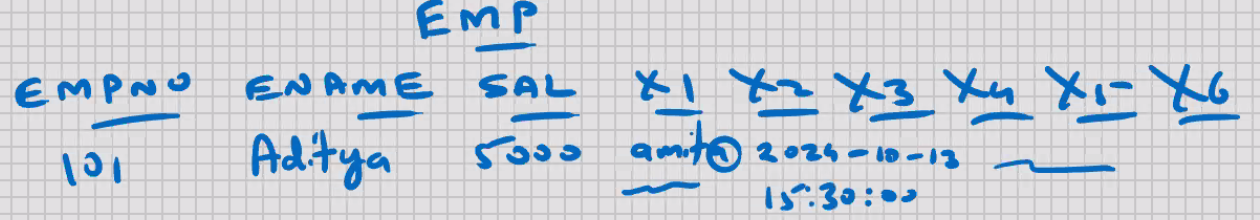 EMP
EMPNO ENAME SAL X1 X2 X3 X4 X5 X6
101 Aditya 5000 amit 2024-10-13
15:30:00